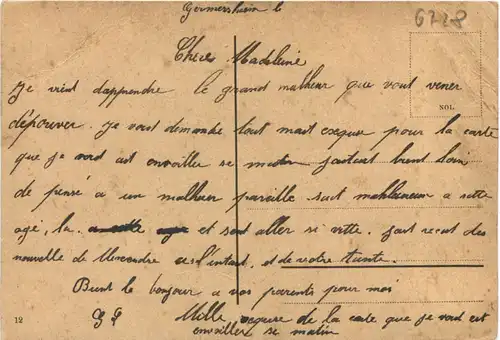 Germersheim l
6728
Chère Madeleine
Je vient d'apprendre le grand malheur que vout vener
d'épouver. Je vout demande tout mait excuse pour la carte
que je vout ait envoiller se matin j'aitait bient loin
de pensé a un malheur pareille sait mahleureux a sette
age, la et sont aller si vitte. j'ait recut des
nouvelle de Alexendre a l'intant, et de votre tante.
Bient le bonjour a vos parents pour moi
NOL.
12
Mille excuse de la carte que je vout ait
envoiller se matin